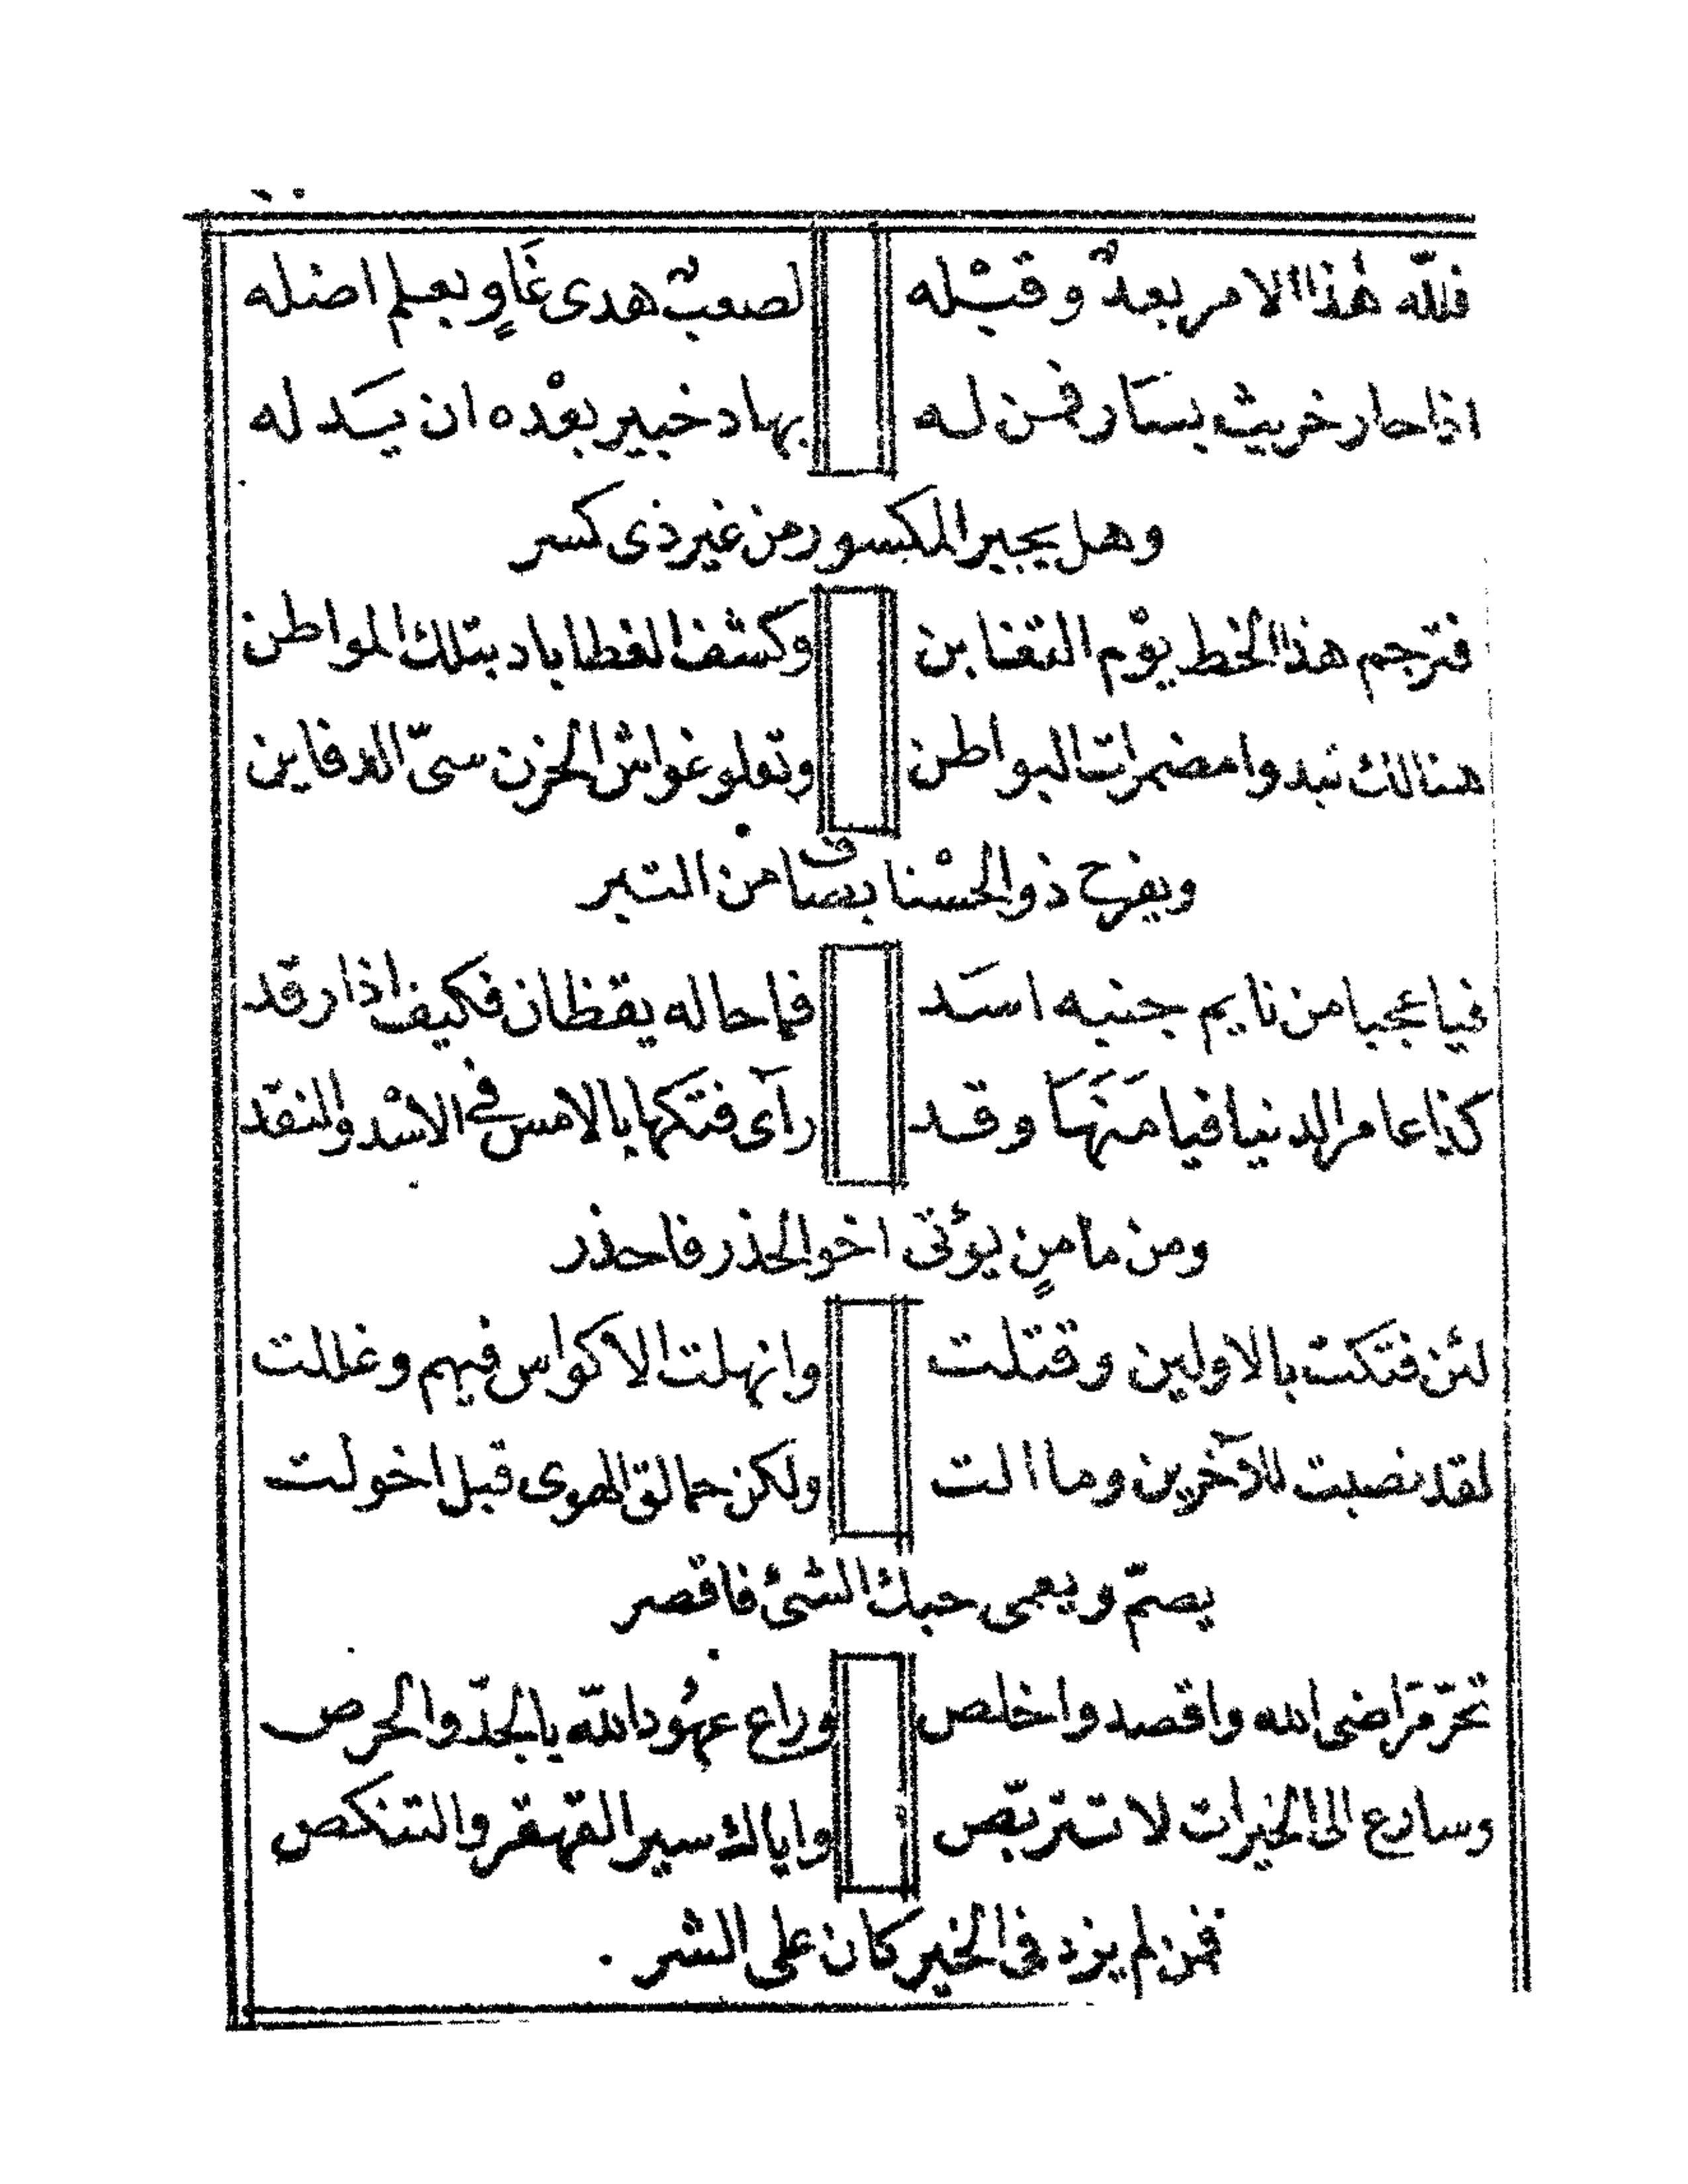 فلله هٰذا الامر بعدٌ وقبْله لصعبٌ هدى غَاوٍ بعلم اضله
اذا حار خريث بسَار فمن له بهاد خبير بعْده ان يَسد له
وهل يجبر المكسور من غير ذى كسر
فترجم هذا الخط يوْم التغابن وكشف الغطا باد بتلك المواطن
هنالك تبدوا مضمرات البواطن وتعلو غواش الحزن سىّ الدفاين
ويفرح ذو الحسْنا بصاف من التبر
فيا عجبا من نايم جنبه اسَد فما حاله يقظان فكيف اذا رقد
كذا عامر الدنيا فيا مَنَهَا وقد رآى فتكها بالامس في الاسْد والنقد
ومن مامنٍ يؤتى اخو الحذر فاحذر
لئن فتكت بالاولين وقتلت وانهلت الاكواس فيهم وعللت
لقد نصبت للآخرين وما الت ولكن حمالق الهوى قبل احولت
يصمّ ويعمى حبك الشئ فاقصر
تحرّ مَرَاضى الله واقصد واخلص وراع عهُود الله بالجدّ والحرص
وسارع الى الخيرات لا تتربّص واياك سير القهقر والتنكص
فمن لم يزد فى الخير كان على الشر .